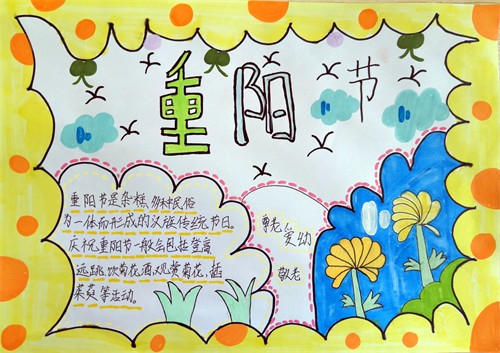 重阳节
重阳节是杂糅多种民俗
为一体而形成的汉族传统节日。
庆祝重阳节一般会包括登高
远眺、饮菊花酒、观赏菊花、插
茱萸等活动。
尊老爱幼
敬老